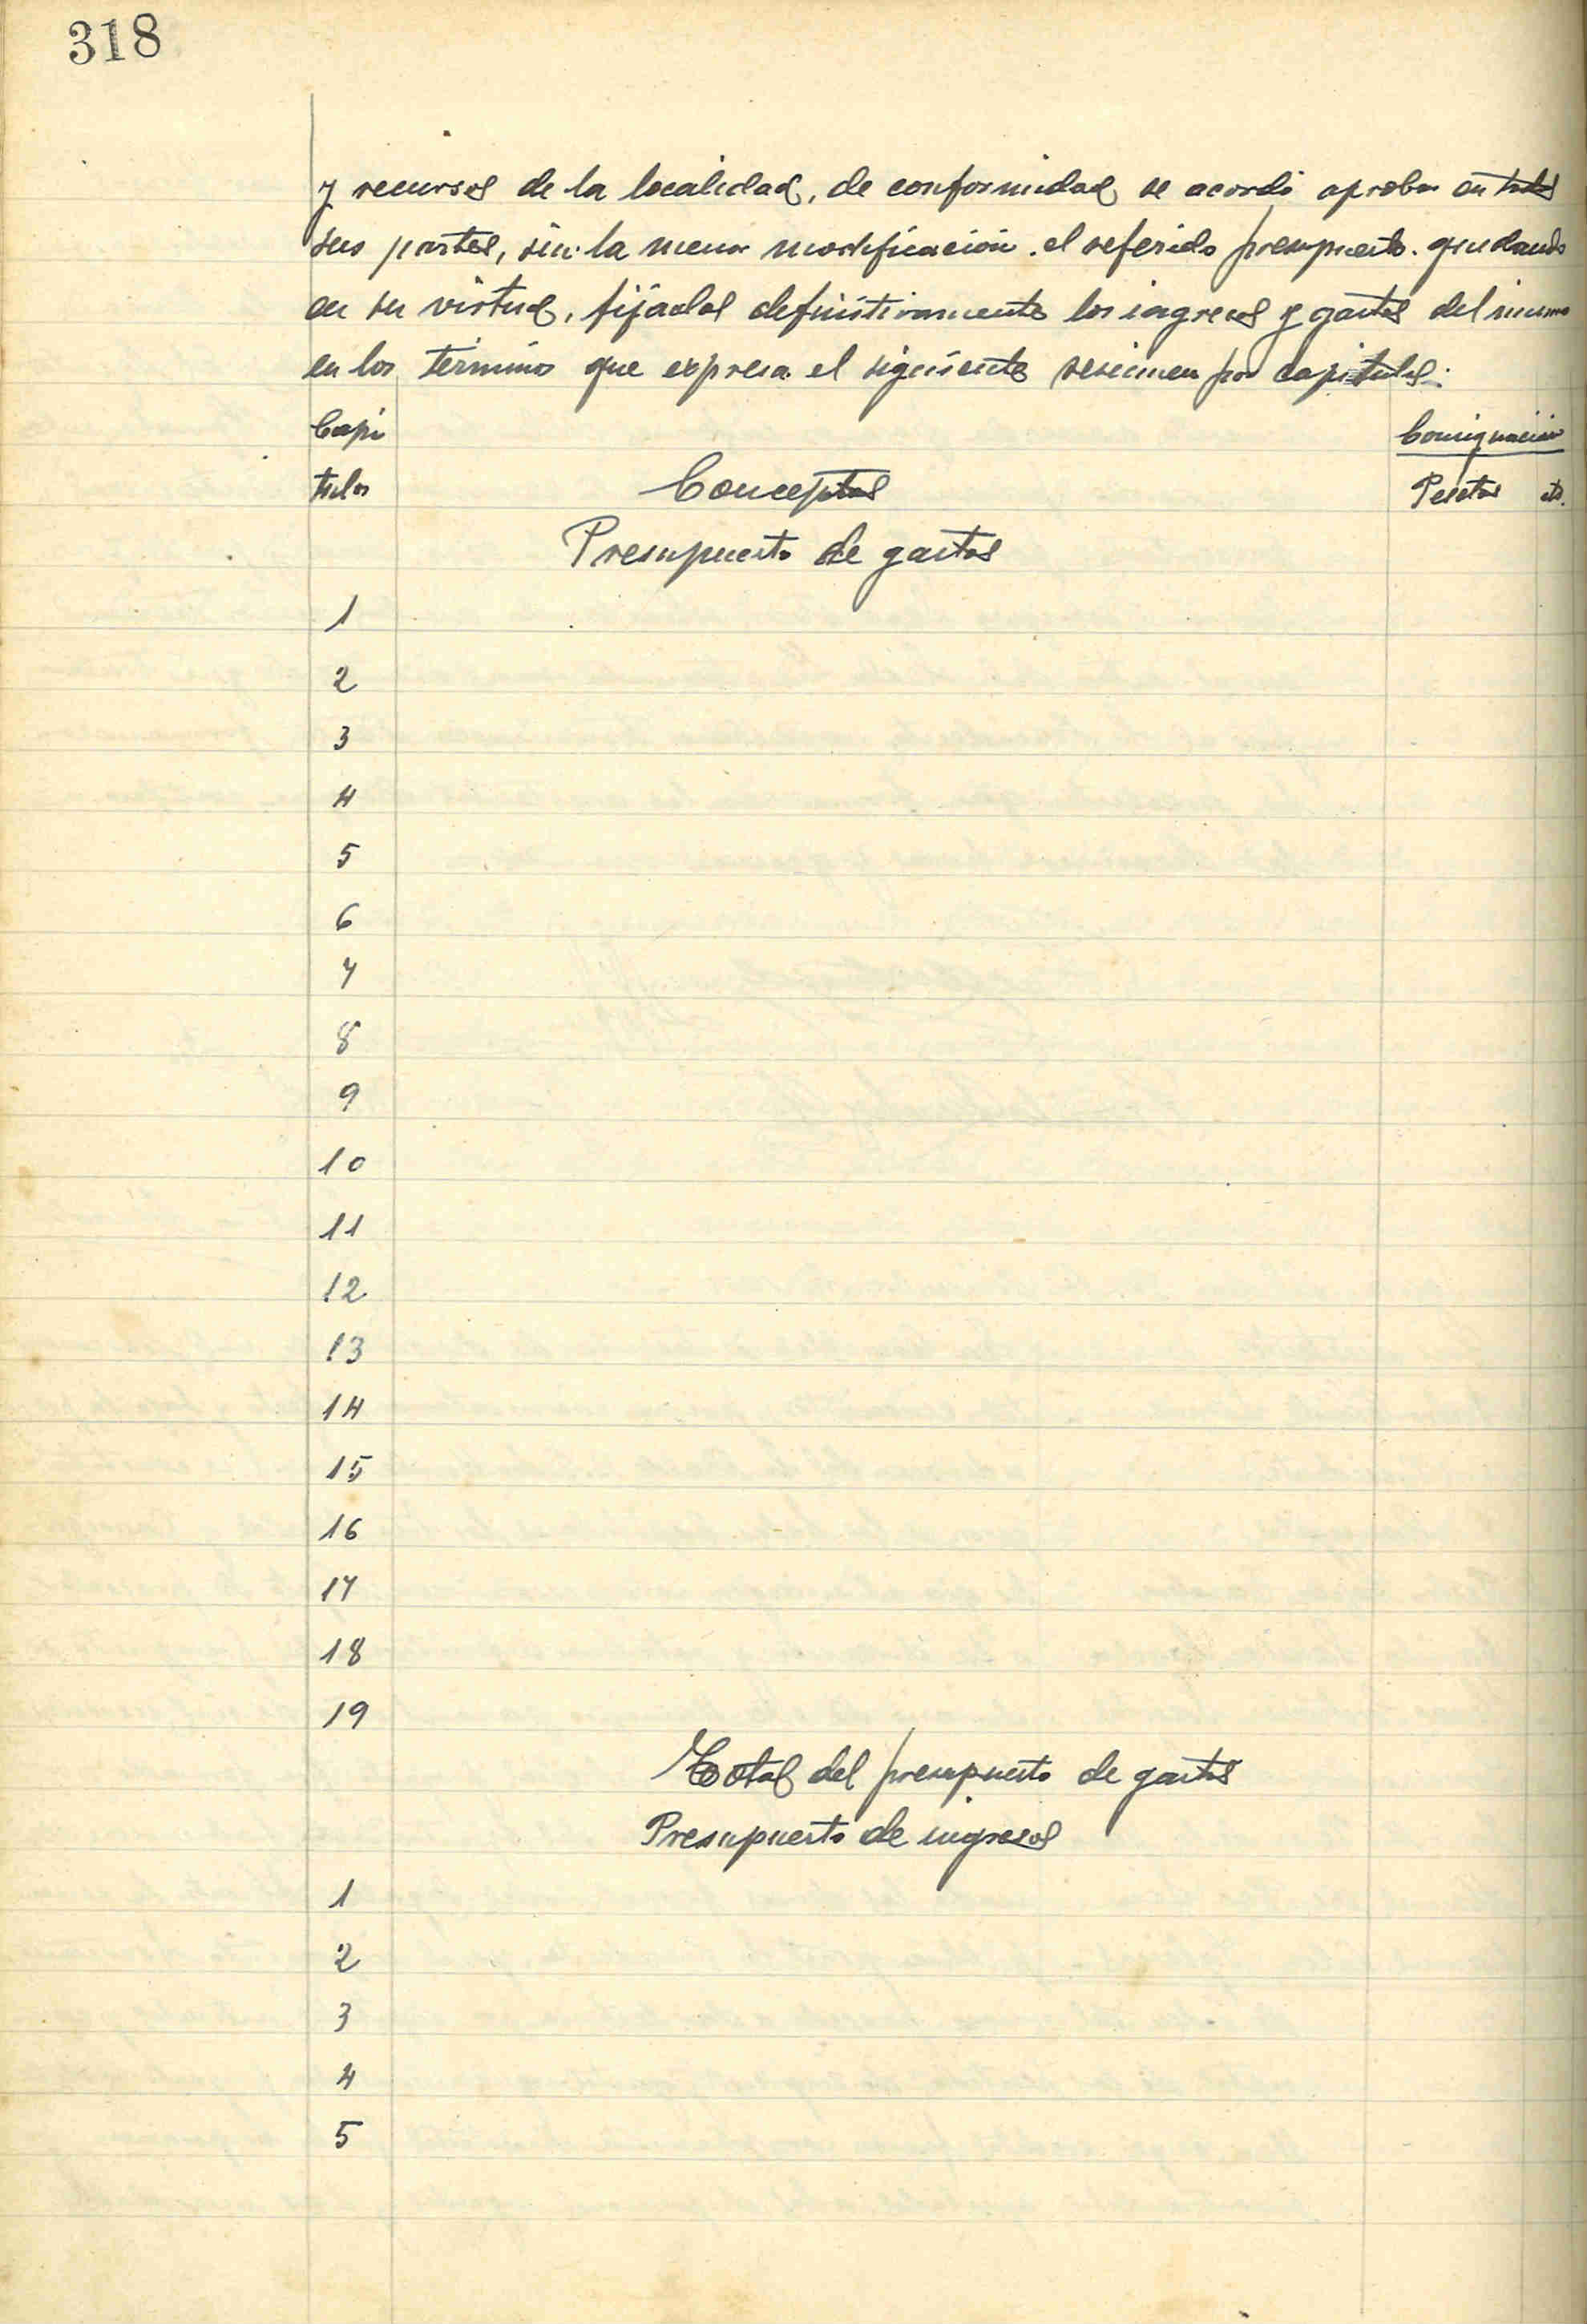 318
y recursos de la localidad, de conformidad se acordó aprobar en todas
sus partes, sin la menor modificación. el referido presupuesto. quedando
en su virtud, fijados definitivamente los ingresos y gastos del mismo
en los términos que expresa el siguiente resumen por capitulos:
Capi
tulos
Conceptos
Consignación
Pesetas cts.
Presupuesto de gastos
1
2
3
4
5
6
7
8
9
10
11
12
13
14
15
16
17
18
19
Total del presupuesto de gastos
Presupuesto de ingresos
1
2
3
4
5